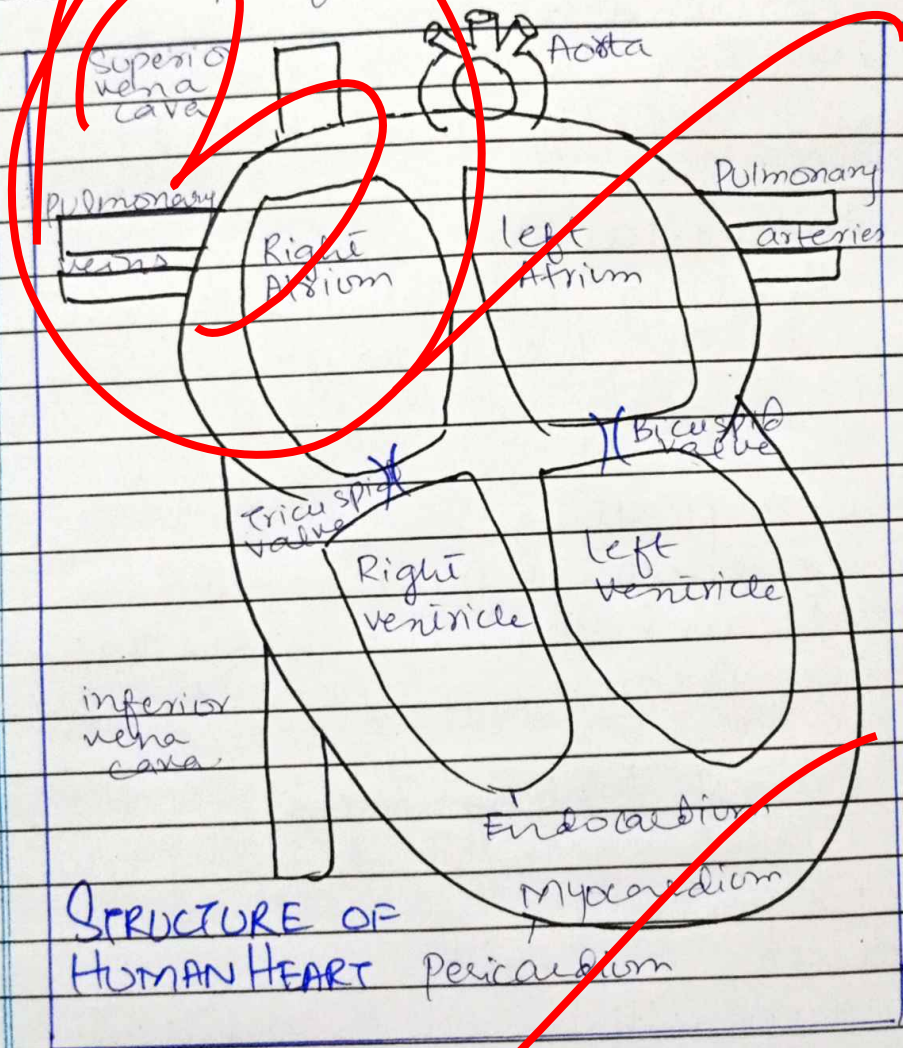 Superior
vena
cava
Aorta
Pulmonary
veins
Pulmonary
arteries
Right
Atrium
left
Atrium
Bicuspid
valve
Tricuspid
valve
Right
ventricle
left
ventricle
inferior
vena
cava
Endocardium
Myocardium
Pericardium
STRUCTURE OF
HUMAN HEART